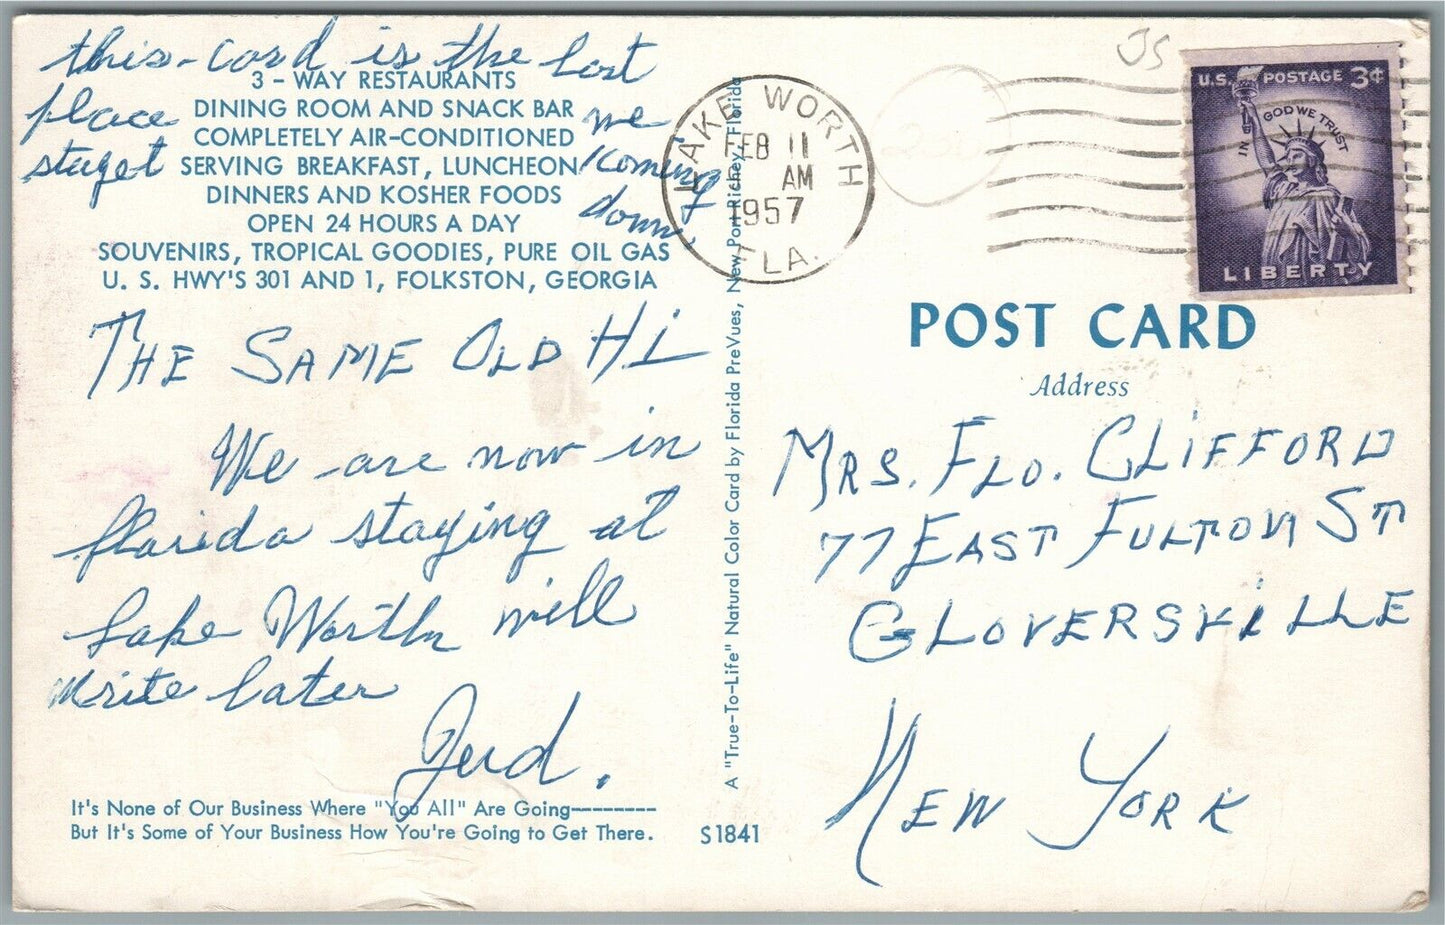 this-card is the last
place we
stayet coming
down.
3 - WAY RESTAURANTS
DINING ROOM AND SNACK BAR
COMPLETELY AIR-CONDITIONED
SERVING BREAKFAST, LUNCHEON
DINNERS AND KOSHER FOODS
OPEN 24 HOURS A DAY
SOUVENIRS, TROPICAL GOODIES, PURE OIL GAS
U. S. HWY'S 301 AND 1, FOLKSTON, GEORGIA
THE SAME OLD HI
We are now in
florida staying at
Lake Worth will
write later
It's None of Our Business Where "You All" Are Going--------
But It's Some of Your Business How You're Going to Get There.
S1841
A "True-To-Life" Natural Color Card by Florida PreVues, New Port Richey, Florida
LAKE WORTH
FEB 11
AM
1957
FLA.
JS
U.S. POSTAGE 3¢
IN GOD WE TRUST
LIBERTY
POST CARD
Address
MRS. FLO. CLIFFORD
77 EAST FULTON ST
GLOVERSVILLE
NEW YORK